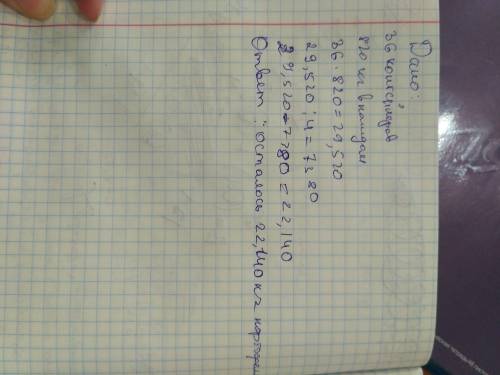 Дано:
36 контейнеров
820 кг в каждом
36 · 820 = 29,520
29,520 : 4 = 7380
29,520 - 7380 = 22,140
Ответ: осталось 22,140 кг